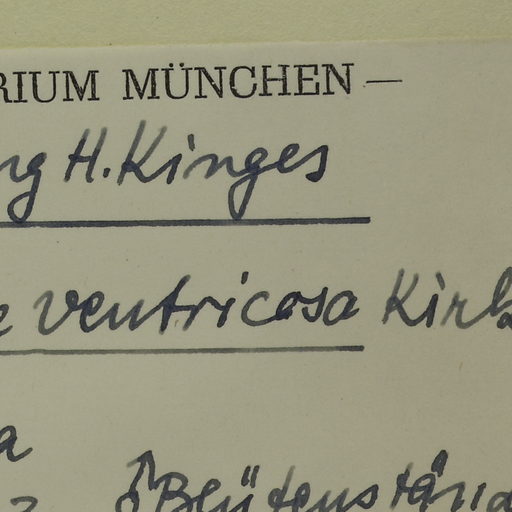 RIUM MÜNCHEN —
ng H. Kinges
e ventricosa Kirk
a
♂ Blütenständ